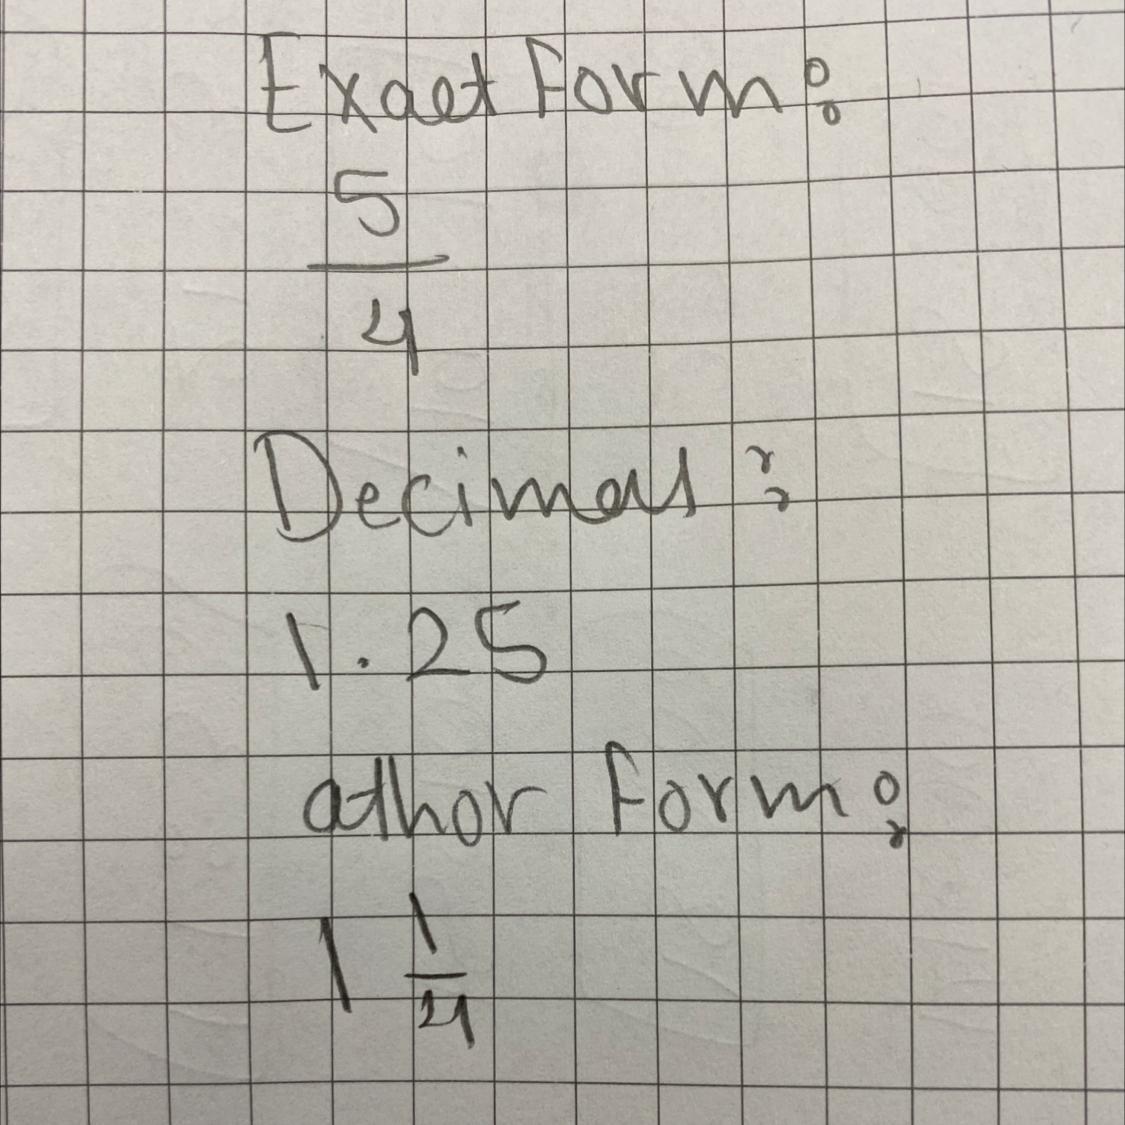 Exact Form:
5
4
Decimal:
1.25
athor Form:
1 1
4